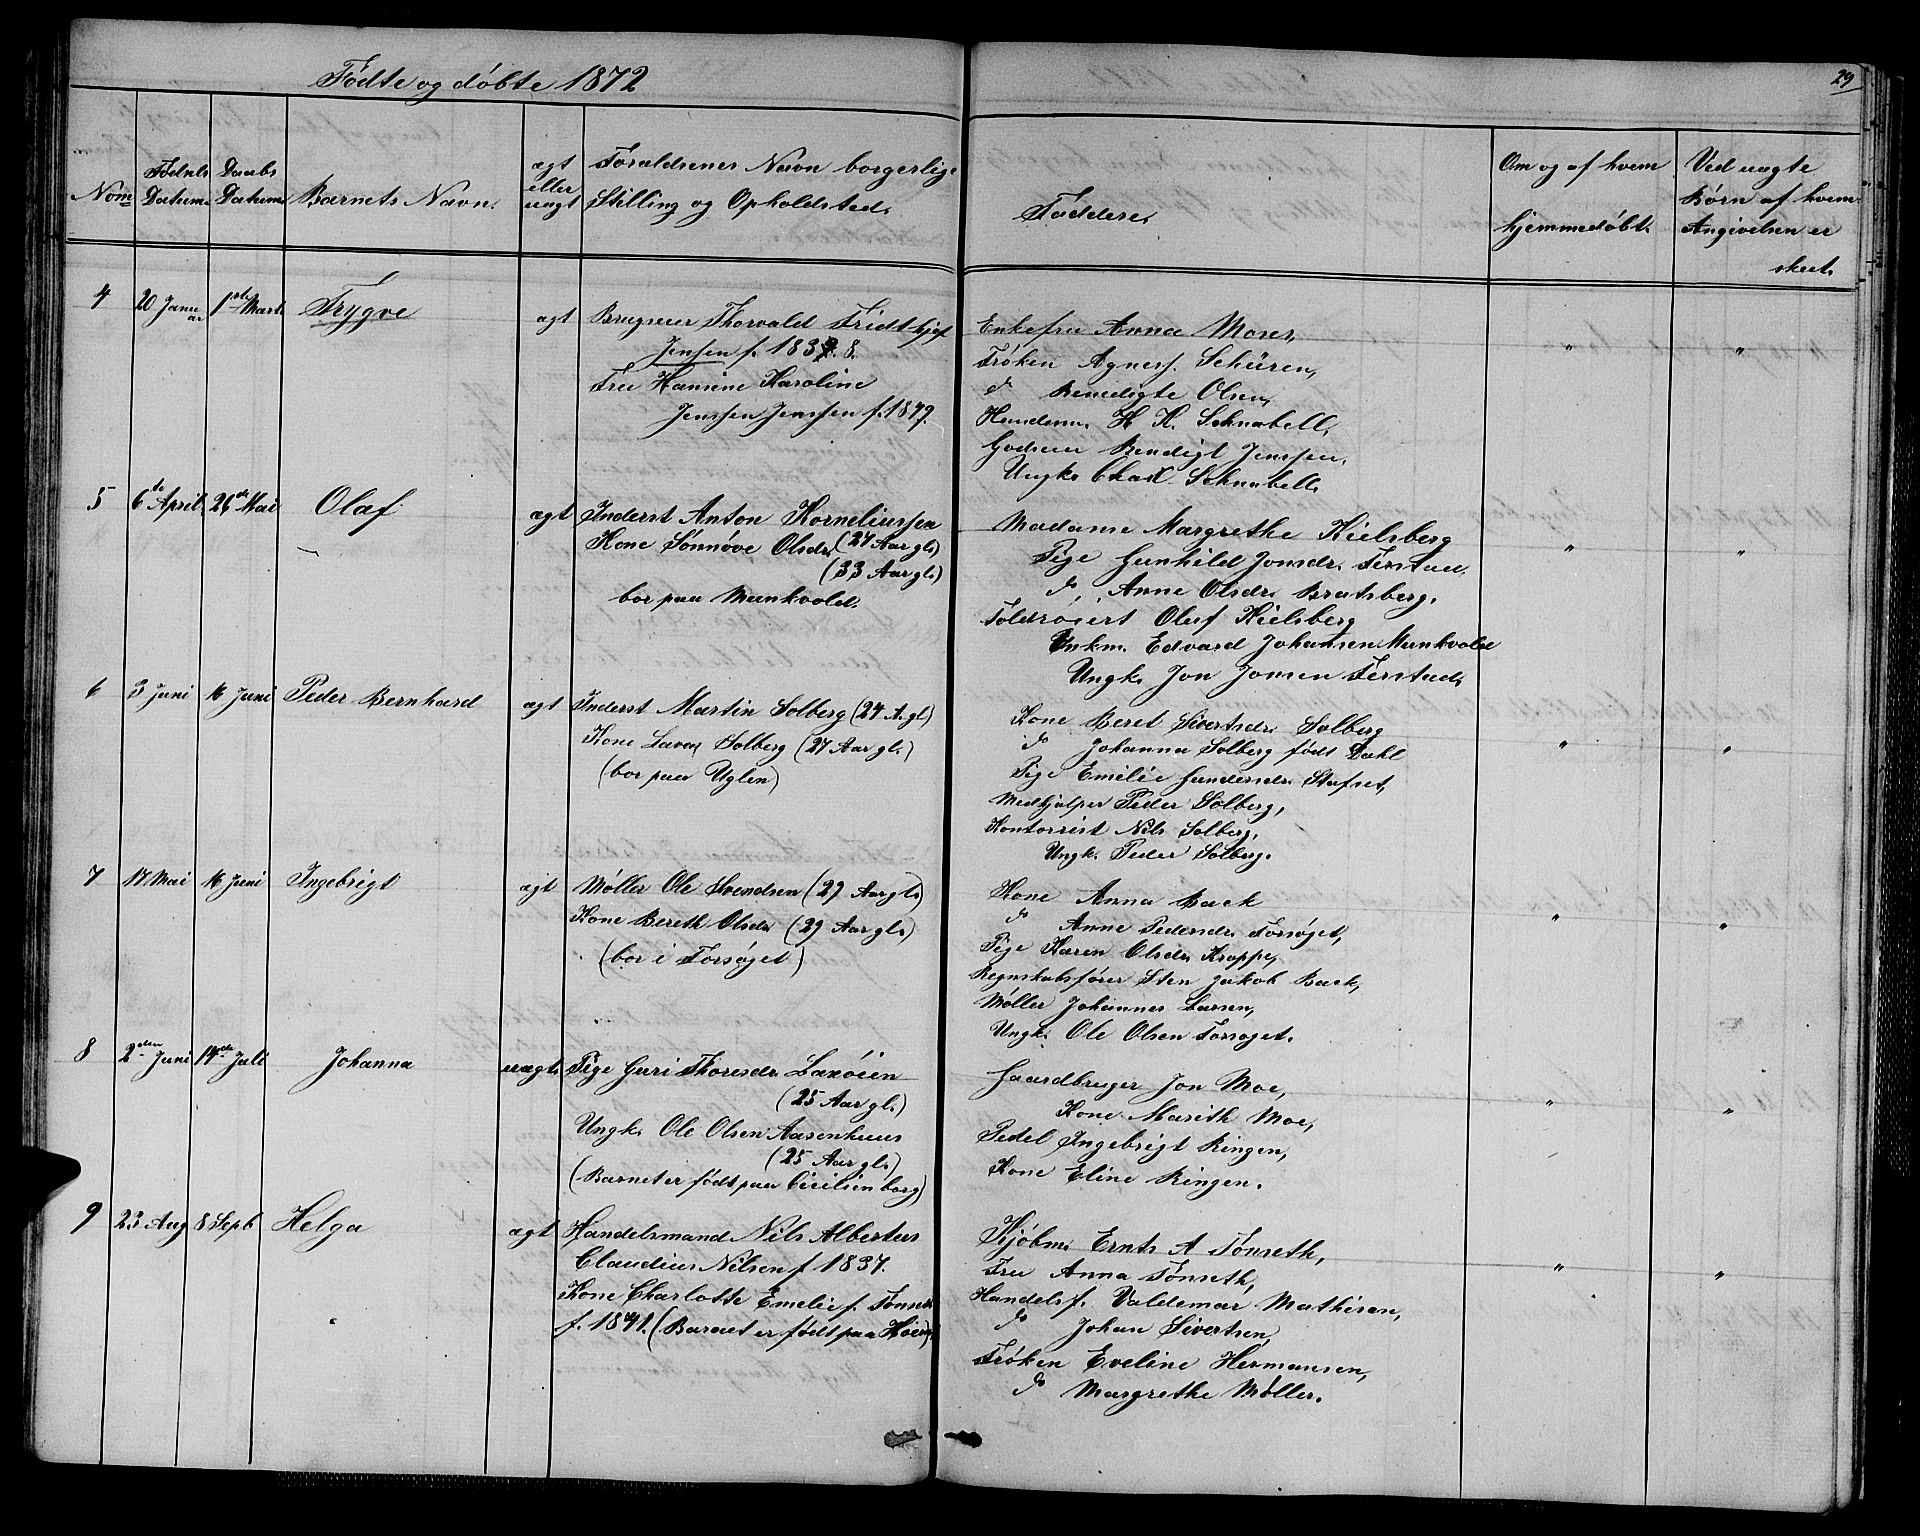 Fødte og døbte 1872
29
Nom
Fødsels Datum
Daabs Datum
Barnets Navn.
ægt eller uægt
Forældrenes Navn borgerlige Stilling og Opholdsted.
Faddere.
Om og af hvem hjemmedøbt.
Ved uægte Børn af hvem Angivelsen er skeet.
4 20 Januar 1ste Marts Trygve ægt
Brugseier Thorvald Fridthjof
Jenssen f. 1838.
Fru Hansine Karoline
Jenssen Jenssen f. 1849.
Enkefru Anna Moses,
Frøken Agnes f. Schüren,
do Benedigte Olsen,
Handesm. H. K. Schnabell,
Godseier Bendigt Jenssen,
Ungk. Chax Schnabell.
" "
5 6te April 26de Mai Olaf ægt
Inderst Anton Korneliussen
(27 Aar gl.)
Kone Sønnøve Olsdr.
(33 Aar gl.)
bor paa Munkvold.
Madame Margrethe Kielsberg
Pige Gunhild Jonsdr. Ferstad,
do, Anne Olsdr. Bratsberg,
Toldrøiert Oluf Kielsberg
Unkm. Edvard Johansen Munkvold
Ungk. Jon Jonsen Ferstad,
" "
6 3 Juni 16 Juni Peder Bernhard ægt
Inderst Martin Solberg (24 A. gl)
Kone Lava Solberg (27 Aar gl.)
(bor paa Uglen)
Kone Beret Sivertsdr. Solberg
do Johanna Solberg født Dahl
Pige Emilie Gundersdr. Stafset,
Medhjælper Peder Solberg,
Kontorrist Nils Solberg,
Ungk. Peder Solberg.
" "
7 17 Mai 16 Juni Ingebrigt ægt
Møller Ole Svendsen (29 Aar gl.)
Kone Bereth Olsdr (29 Aar gl.)
(bor i Forsøget)
Kone Anna Back
do Anne Pedersdr. Forsøget,
Pige Karen Olsdr. Kroppe,
Regnskabsfører Sten Jakob Back,
Møller Johannes Larsen,
Ungk. Ole Olsen Forsøget.
" "
8 2den Juni 14de Juli Johanna uægt
Pige Guri Thoresdr. Laxøien
(25 Aar gl.)
Ungk. Ole Olsen Aasenhuus
(25 Aar gl.)
(Barnet er født paa Cicilienborg)
Gaardbruger Jon Moe,
Kone Marith Moe,
Pedel Ingebrigt Ringen,
Kone Eline Ringen.
" "
9 23 Aug 8 Septb Helga ægt
Handelsmand Nils Albertus
Claudius Nilsen f 1837.
Kone Charlotte Emelie f. Tønseth
f. 1841. (Barnet er født paa Høien)
Kjøbm. Ernts A Tønseth,
Fru Anna Tønseth,
Handelsf. Valdemar Mathisen,
do Johan Sivertsen,
Frøken Eveline Hermansen,
do Margrethe Møller.
" "